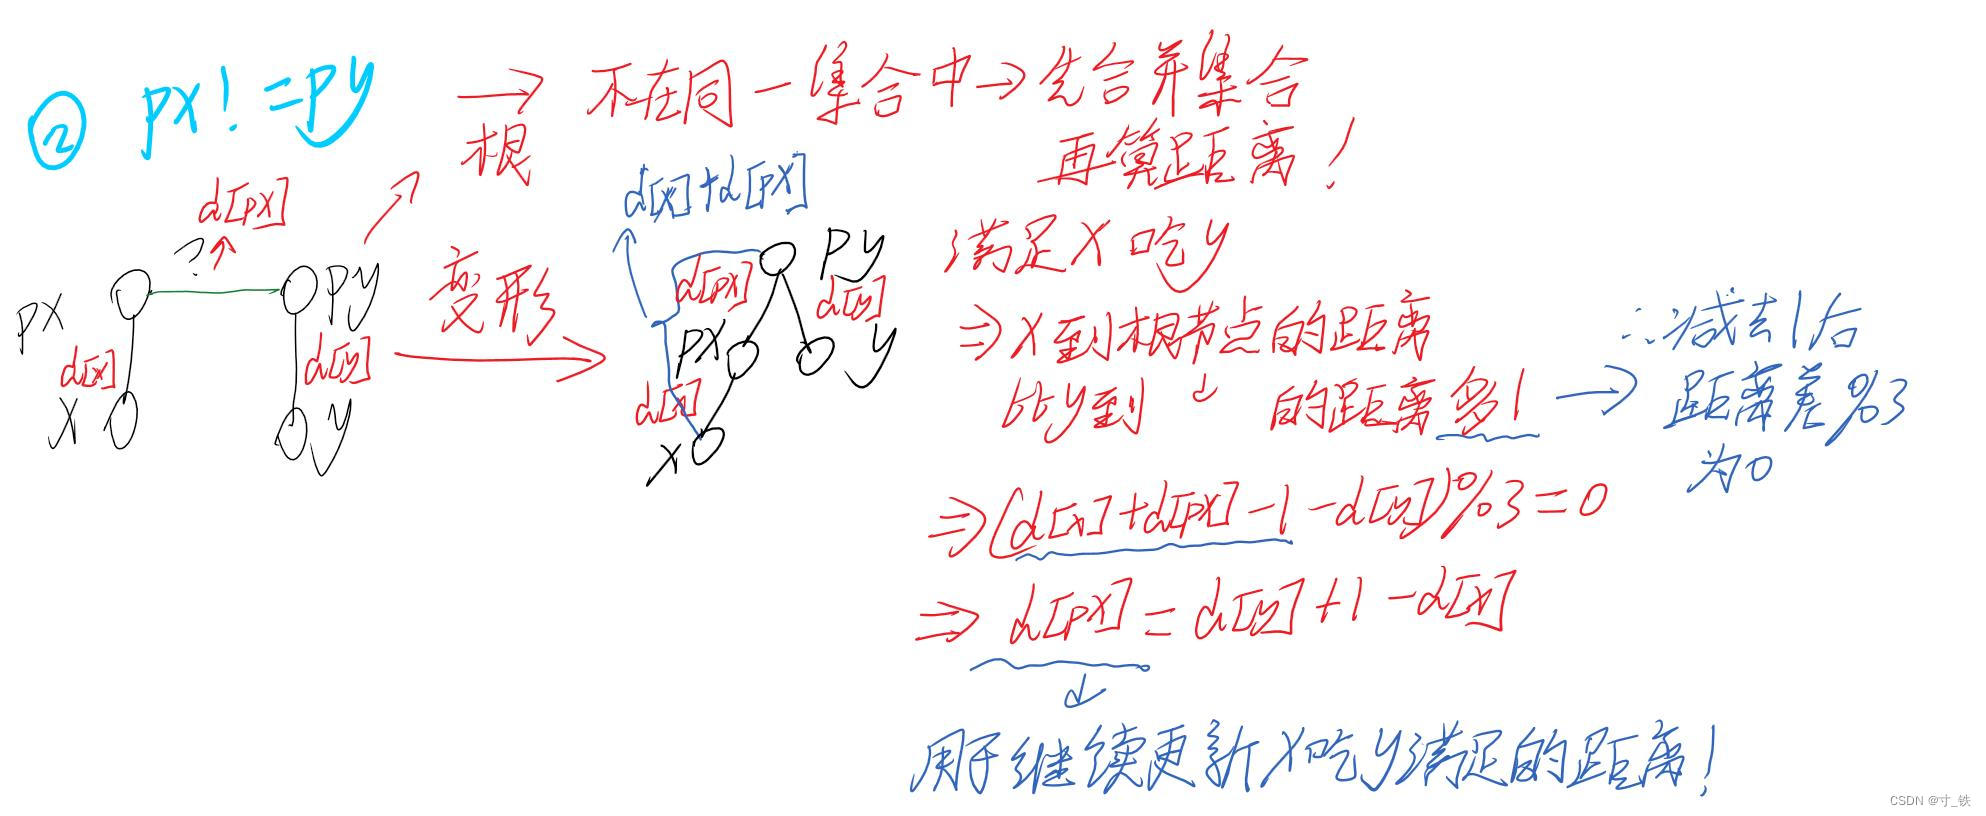 ② px!=py → 不在同一集合中→先合并集合
根 再算距离！
d[px] d[x]+d[px]
? 满足X吃y
px py 变形 d[px] py d[y]
⇒X到根节点的距离 ∴减去1后
d[x] d[y] px y
比y到 ↓ 的距离多1 → 距离差%3
为0
X y d[x] X
⇒(d[x]+d[px]-1-d[y])%3=0
⇒ d[px]=d[y]+1-d[x]
↓
用于继续更新X吃y满足的距离！
CSDN @寸_铁